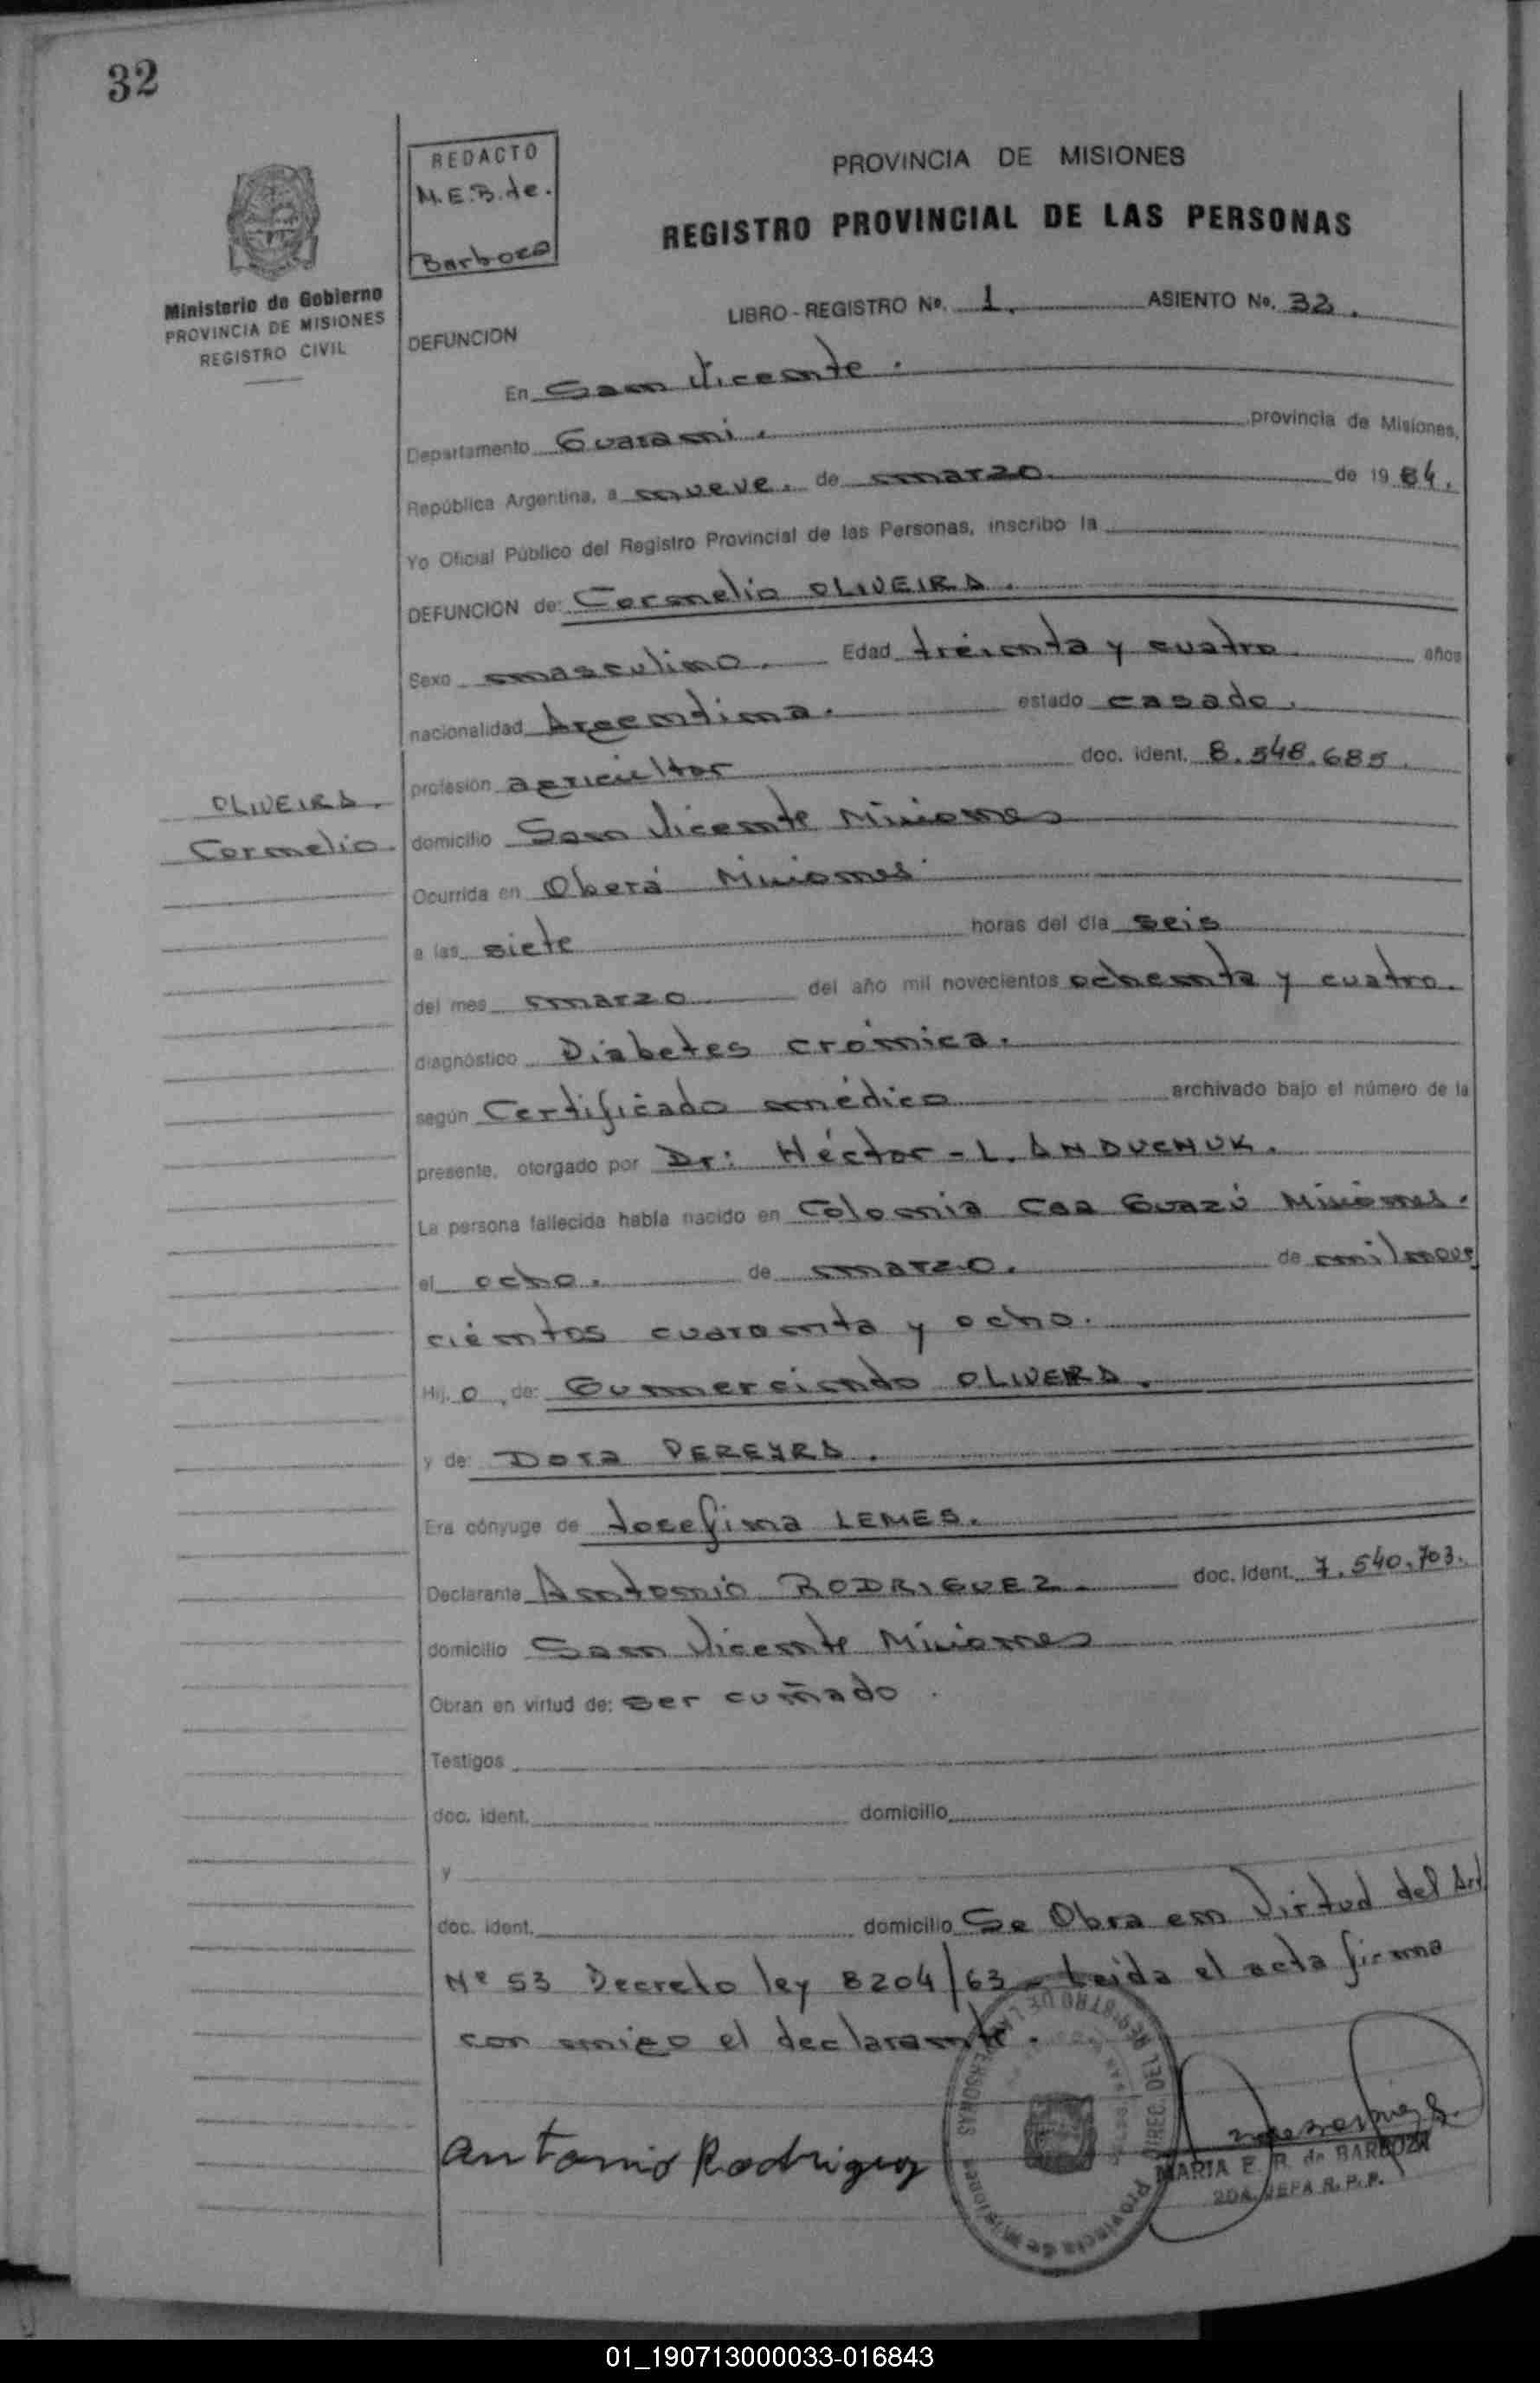 32
REDACTO
M.E.B. de.
Barboza
Ministerio de Gobierno
PROVINCIA DE MISIONES
REGISTRO CIVIL
PROVINCIA DE MISIONES
REGISTRO PROVINCIAL DE LAS PERSONAS
LIBRO - REGISTRO Nº. 1. ASIENTO Nº. 32.
DEFUNCION
En San Vicente.
Departamento Guarani. provincia de Misiones,
República Argentina, a nueve. de marzo de 1984.
Yo Oficial Público del Registro Provincial de las Personas, inscribo la
DEFUNCION de: Cornelio OLIVEIRA.
Sexo masculino. Edad treinta y cuatro años
nacionalidad Argentina. estado casado.
profesión agricultor doc. ident. 8.548.685.
OLIVEIRA.
Cornelio.
domicilio San Vicente Misiones
Ocurrida en Oberá Misiones.
a las siete horas del día seis
del mes marzo del año mil novecientos ochenta y cuatro.
diagnóstico Diabetes crónica.
según Certificado médico archivado bajo el número de la
presente, otorgado por Dr: Héctor - L. ANDUCHUK.
La persona fallecida había nacido en Colonia Caa Guazú Misiones.
el ocho. de marzo. de mil nove
cientos cuarenta y ocho.
Hij o, de: Gumercindo OLIVERA.
y de: Dora PEREYRA.
Era cónyuge de Josefina LEMES.
Declarante Antonio RODRIGUEZ. doc. Ident. 7.540.703.
domicilio San Vicente Misiones
Obran en virtud de: ser cuñado.
Testigos
doc. ident. domicilio
y
doc. ident. domicilio Se Obra en Virtud del Art
Nº 53 Decreto ley 8204/63 - Leida el acta firma
con migo el declarante.
Antonio Rodriguez
DIREC. DEL REGISTRO DE LAS PERSONAS
Provincia de Misiones
MARIA E. B. de BARBOZA
2DA. JEFA R. P. P.
01_190713000033-016843